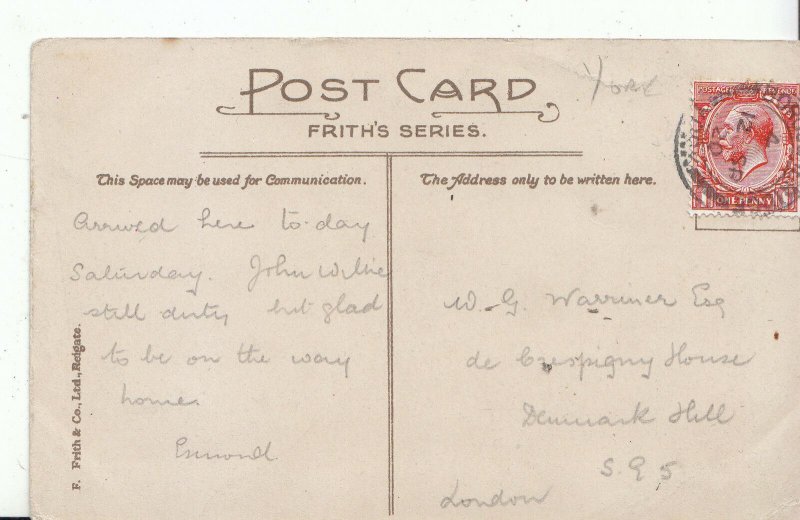 POST CARD
York
FRITH'S SERIES.
POSTAGE REVENUE
ONE PENNY
This Space may be used for Communication.
The Address only to be written here.
Arrived here to-day
Saturday. John Willie
still dirty but glad
to be on the way
home.
Esmond
W. G. Warriner Esq
de Crespigny House
Denmark Hill
S.E 5
London
F. Frith & Co., Ltd., Reigate.